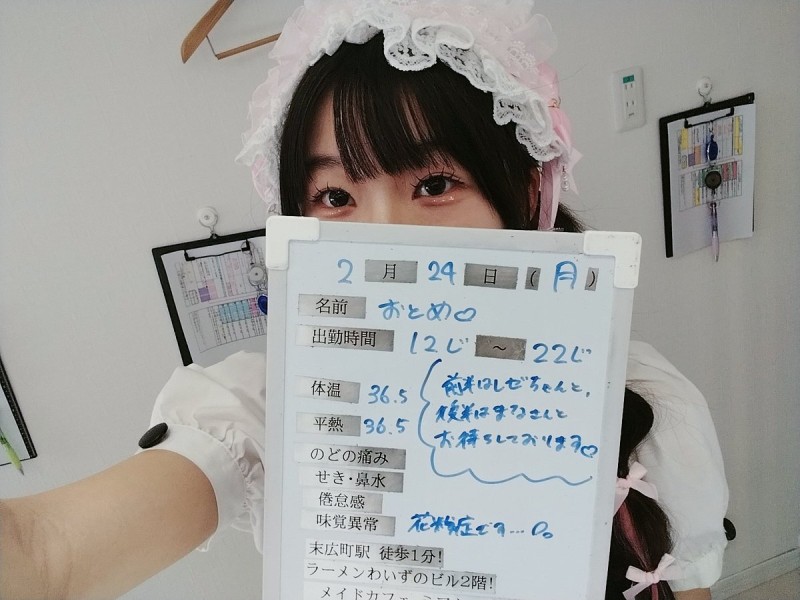 2月24日(月)
名前 おとめ♡
出勤時間 12じ～22じ
体温 36.5
平熱 36.5
前半はしぜちゃんと、
後半はまなさんと
お待ちしております♡
のどの痛み
せき・鼻水
倦怠感
味覚異常 花粉症です…
末広町駅 徒歩1分!
ラーメンわいずのビル2階!